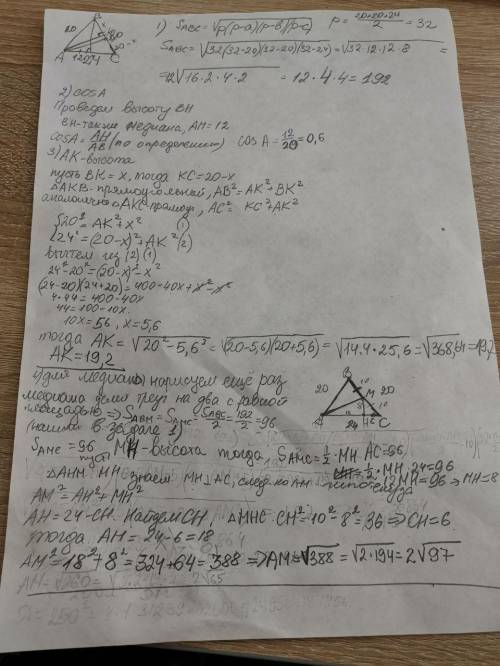 1) S_ABC = √(p(p-a)(p-b)(p-c)) p = (20+20+24)/2 = 32
S_ABC = √(32(32-20)(32-20)(32-24)) = √(32·12·12·8) =
12√(16·2·4·2) = 12·4·4 = 192
B
20
20
20-x
A 12 24 C
2) cosA
Проведем высоту BH
BH-также медиана, AH=12
cosA = AH/AB (по определению) cos A = 12/20 = 0,6
3) AK-высота
пусть BK = x, тогда KC=20-x
ΔAKB-прямоугольный, AB²=AK²+BK²
аналогично ΔAKC-прямоуг, AC² = KC²+AK²
20² = AK²+x² (1)
24² = (20-x)²+AK² (2)
вычтем из (2) (1)
24²-20²=(20-x)²-x²
(24-20)(24+20) = 400-40x+x²-x²
4·44=400-40x
44=100-10x.
10x=56, x=5,6
тогда AK = √(20²-5,6²) = √((20-5,6)(20+5,6)) = √(14.4·25,6) = √368,64 = 19,2
AK=19,2
4) для медианы нарисуем ещё раз
B
20 M 20
10
A 24 H C
медиана делит на два с равной
площадью ⇒ S_ABM = S_AMC = S_ABC/2 = 192/2 = 96
(нашли в задаче 1)
S_AMC = 96 пусть MH-высота тогда S_AMC = 1/2·MH·AC=96
1/2·MH·24=96
ΔAHM MH знаем MH⊥AC, след-но AM гипотенуза 12MH=96 → MH=8
AM²=AH²+MH²
AH=24-CH. Найдем CH, ΔMHC CH²=10²-8²=36 ⇒ CH=6
тогда AH=24-6=18
AM²=18²+8²=324+64=388 ⇒ AM=√388 = √(2·194) = 2√97